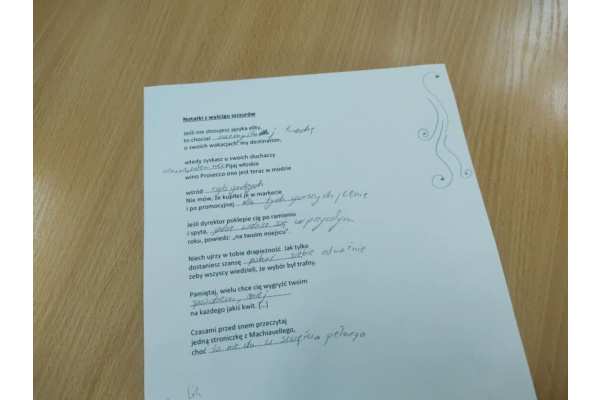 Notatki z wyścigu szczurów
Jeśli nie stosujesz języka elity,
to chociaż
o swoich wakacjach „my destination,
wtedy zyskasz u swoich słuchaczy
Pijaj włoskie
wino Prosecco ono jest teraz w modzie
wśród
Nie mów, że kupiłeś je w markecie
i po promocyjnej dla tych gorszych cenie
Jeśli dyrektor poklepie cię po ramieniu
i spyta, gdzie widzisz się w przyszłym
roku, powiedz: „na twoim miejscu”.
Niech ujrzy w tobie drapieżność. Jak tylko
dostaniesz szansę pokaż siebie odważnie
żeby wszyscy wiedzieli, że wybór był trafny.
Pamiętaj, wielu chce cię wygryźć twoim
na każdego jakiś kwit. [...]
Czasami przed snem przeczytaj
jedną stroniczkę z Machiavellego,
choć to nie da ci szczęścia pełnego